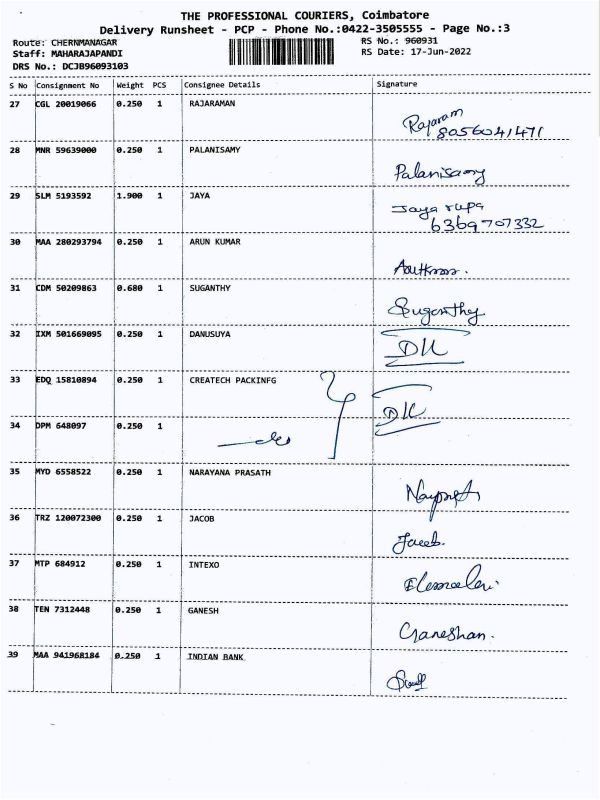 THE PROFESSIONAL COURIERS, Coimbatore
Delivery Runsheet - PCP - Phone No.:0422-3505555 - Page No.:3
Route: CHERNMANAGAR RS No.: 960931
Staff: MAHARAJAPANDI RS Date: 17-Jun-2022
DRS No.: DCJB96093103
S No Consignment No Weight PCS Consignee Details Signature
27 CGL 20019066 0.250 1 RAJARAMAN
Rajaram
8056041471
28 MNR 59639000 0.250 1 PALANISAMY
Palanisamy
29 SLM 5193592 1.900 1 JAYA
Jaya rupa
6369707332
30 MAA 280293794 0.250 1 ARUN KUMAR
31 CDM 50209863 0.680 1 SUGANTHY
Suganthy
32 IXM 501669095 0.250 1 DANUSUYA
33 EDQ 15810894 0.250 1 CREATECH PACKINFG
34 DPM 648097 0.250 1
35 MYD 6558522 0.250 1 NARAYANA PRASATH
36 TRZ 120072300 0.250 1 JACOB
Jacob.
37 MTP 684912 0.250 1 INTEXO
38 TEN 7312448 0.250 1 GANESH
Ganeshan.
39 MAA 941968184 0.250 1 INDIAN BANK